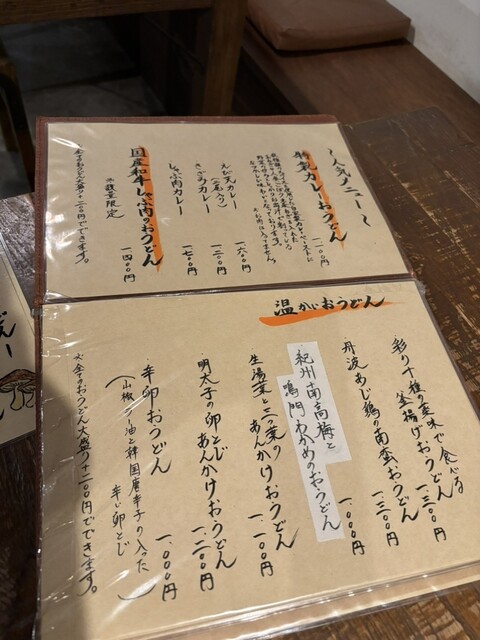 〜人気メニュー〜
特製カレーおうどん
一、一〇〇円
えび天カレー
(二尾入り)
一、六〇〇円
きざみカレー
一、二〇〇円
しゃぶ肉カレー
一、七〇〇円
国産和牛しゃぶ肉のおうどん
一、四〇〇円
※数量限定
全てのおうどん大盛り
円でできます。
温かいおうどん
彩り十種の薬味で食べる
釜揚げおうどん
一、三〇〇円
丹波あじ鶏の南蛮おうどん
一、三〇〇円
紀州南高梅と
鳴門わかめのおうどん
一、〇〇〇円
生湯葉と三つ葉の
あんかけおうどん
一、一〇〇円
明太子の卵とじ
あんかけおうどん
一、二〇〇円
辛卵おうどん
一、〇〇〇円
(山椒
油と韓国唐辛子の入った
辛い卵とじ)
※全てのおうどん大盛り+二〇〇円でできます。